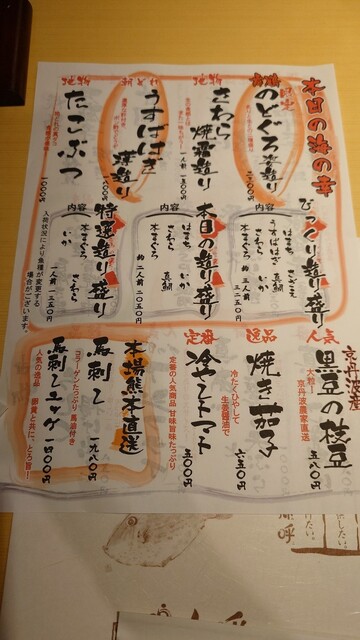 本日の海の幸
限定
のどぐろ姿造り
地物
さわら焼霜造り
朝どれ
うすばはぎ薄造り
地物
たこぶつ
1000円
びっくり造り盛り
内容
はまち さざえ
うすばはぎ 真鯛
さわら いか
本まぐろ
約 三人前 三二五〇円
本日の造り盛り
内容
はまち 真鯛
さわら いか
本まぐろ
約 二人前 二〇五〇円
特選造り盛り
内容
さわら
いか
本まぐろ
一人前 一二五〇円
入荷状況により魚種が変更する
場合がございます。
人気
京丹波産
黒豆の枝豆
大粒!
京丹波農家直送
五八〇円
逸品
焼き茄子
冷たくひやして
生姜醤油で
六五〇円
定番
冷やしトマト
定番の人気商品 甘味旨味たっぷり
五〇〇円
本場熊本直送
馬刺し 一九八〇円
コラーゲンたっぷり 馬油付き
馬刺しユッケ 一四〇〇円
人気の逸品 卵黄と共に、とろ旨!